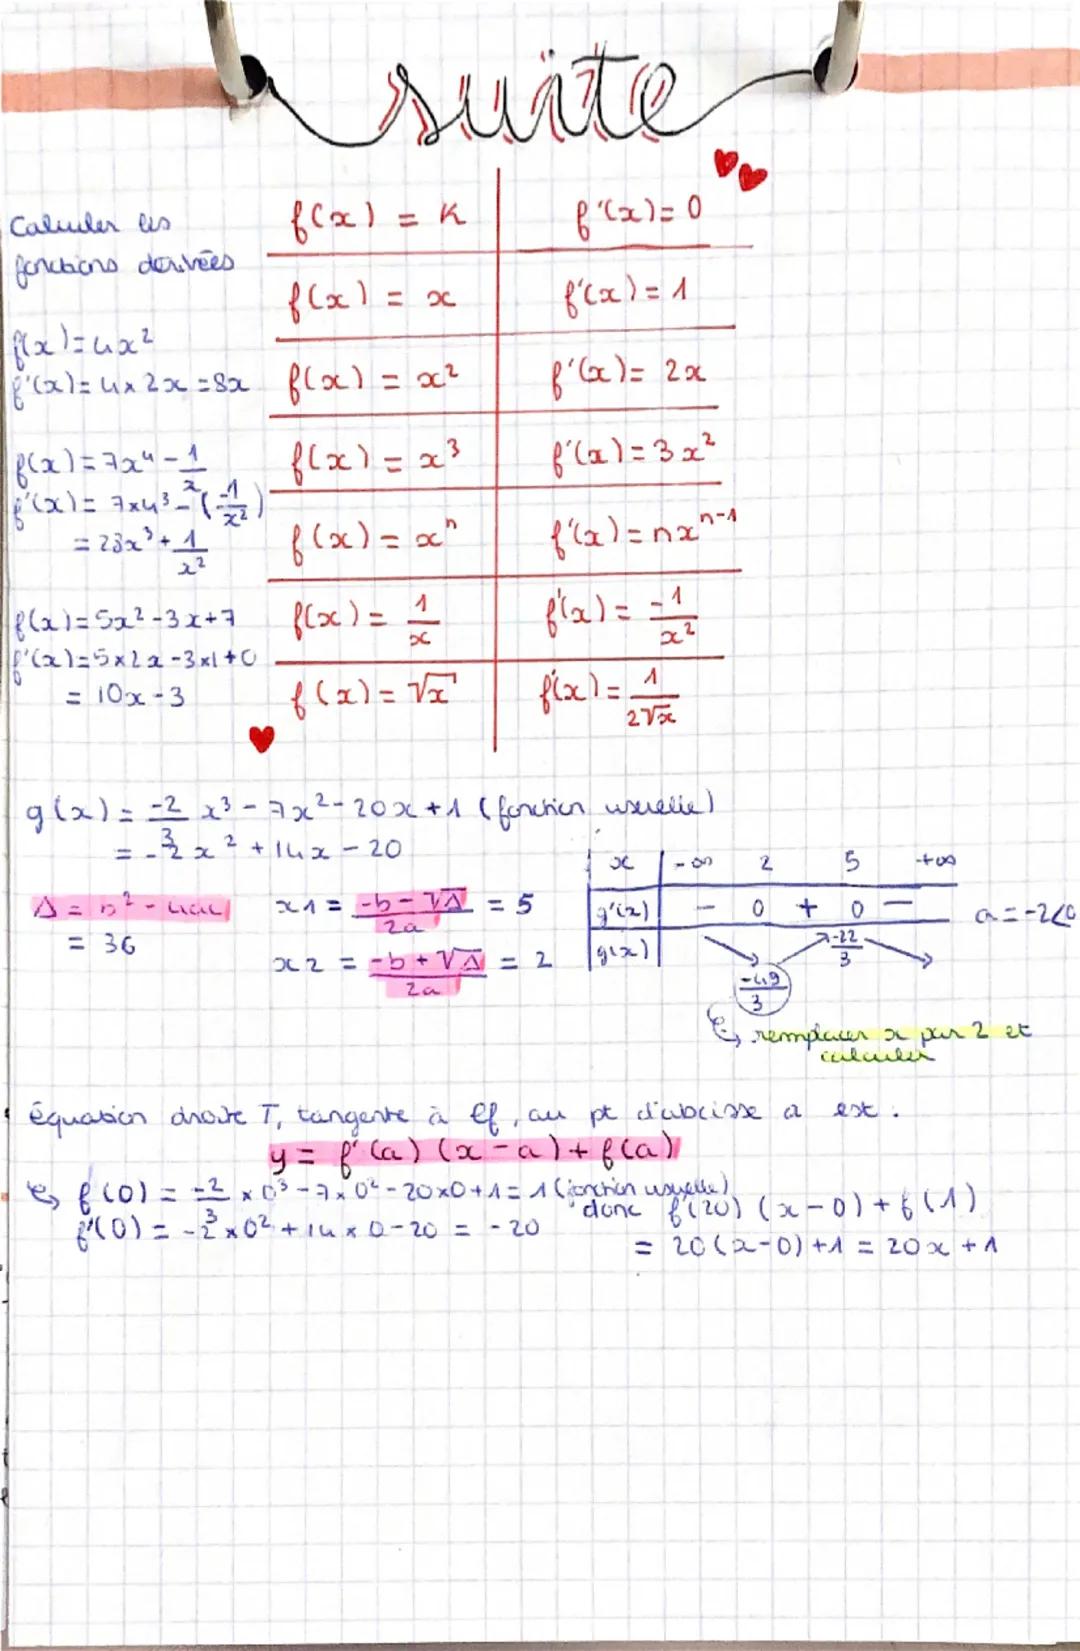 suite
Calculer les
fonctions dérivées
f(x)=4x²
f'(x)=4x2x=8x
f(x)=7x⁴-1/x
f'(x)=7x4³-(-1/x²)
=28x³+1/x²
f(x)=5x²-3x+7
f'(x)=5x2x-3x1+0
= 10x-3
f(x) = K | f'(x)=0
f(x) = x | f'(x)=1
f(x) = x² | f'(x)= 2x
f(x) = x³ | f'(x)=3x²
f(x) = xⁿ | f'(x)=nxⁿ⁻¹
f(x) = 1/x | f'(x)= -1/x²
f(x)=√x | f'(x)=1/2√x
g(x)= -2/3 x³-7x²-20x+1 (fonction usuelle)
= -2x²+14x-20
Δ = b²-4ac
= 36
x1 = -b-√Δ/2a = 5
x2 = -b+√Δ/2a = 2
x | -∞ 2 5 +∞
g'(x) | - 0 + 0 - a=-2<0
g(x) | -49/3 -22/3
remplacer x par 2 et
calculer
équation droite T, tangente à Cf, au pt d'abcisse a est :
y = f'(a)(x-a)+f(a)
f(0) = -2/3 x0³-7x0²-20x0+1=1 (fonction usuelle)
f'(0)=-2x0²+14x0-20 = -20
donc f'(20)(x-0)+f(1)
= 20(x-0)+1=20x+1